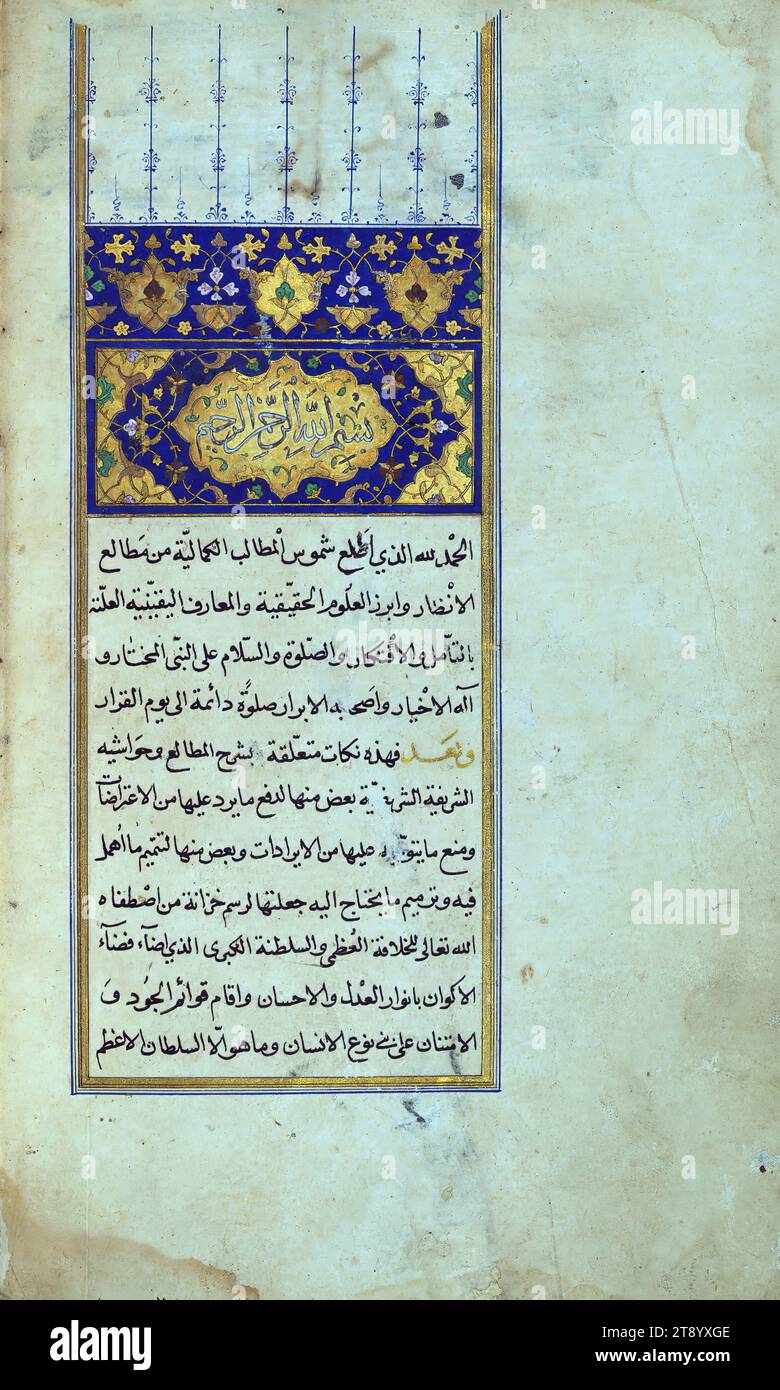 بسم الله الرحمن الرحيم
الحمد لله الذي أطلع شموس المطالب الكمالية من مطالع
الانظار وابرز العلوم الحقيقية والمعارف اليقينية
بالتأمل والافتكار والصلوة والسلام على النبي المختار و
آله الاخيار واصحابه الابرار صلوة دائمة الى يوم القرار
وبعد فهذه نكات متعلقة بشرح المطالع وحواشيه
الشريفة الشريفية بعض منها لدفع ما يرد عليها من الاعتراضات
ومنع ما يتوجه عليها من الايرادات وبعض منها لتتميم ما أهمل
فيه وترميم ما يحتاج اليه جعلتها لرسم خزانة من اصطفاه
الله تعالى للخلافة العظمى والسلطنة الكبرى الذي اضآء فضآء
الاكوان بانوار العدل والاحسان واقام قوائم الجود و
الامتنان على بني نوع الانسان وما هو الّا السلطان الاعظم
alamy
alamy
alamy
Image ID: 2T8YXGE
www.alamy.com